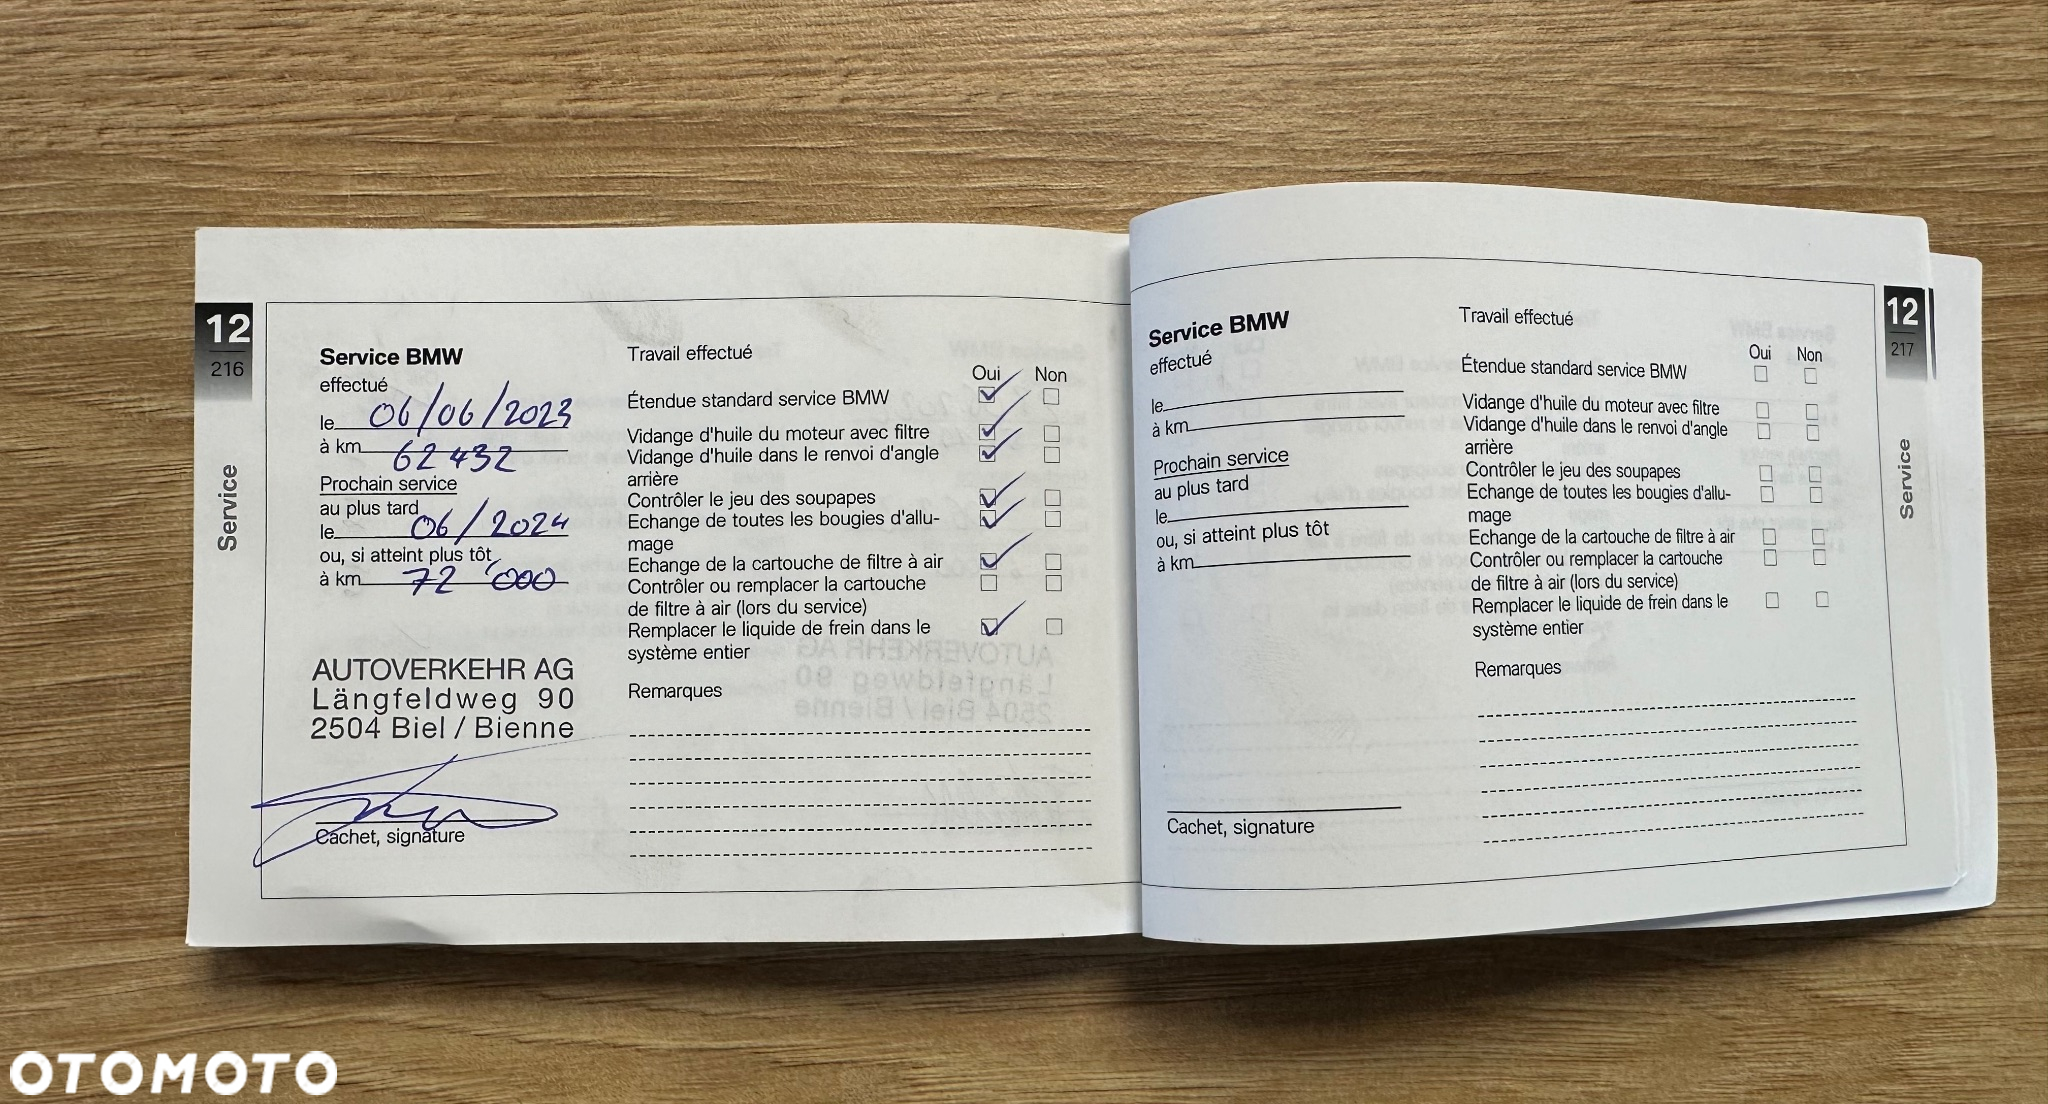 12
216
Service
Service BMW
effectué
le 06/06/2023
à km 62 432
Prochain service
au plus tard
le 06/2024
ou, si atteint plus tôt,
à km 72'000
AUTOVERKEHR AG
Längfeldweg 90
2504 Biel / Bienne
Cachet, signature
Travail effectué
Oui Non
Étendue standard service BMW
Vidange d'huile du moteur avec filtre
Vidange d'huile dans le renvoi d'angle
arrière
Contrôler le jeu des soupapes
Echange de toutes les bougies d'allu-
mage
Echange de la cartouche de filtre à air
Contrôler ou remplacer la cartouche
de filtre à air (lors du service)
Remplacer le liquide de frein dans le
système entier
Remarques
Service BMW
effectué
le
à km
Prochain service
au plus tard
le
ou, si atteint plus tôt
à km
Cachet, signature
Travail effectué
Oui Non
Étendue standard service BMW
Vidange d'huile du moteur avec filtre
Vidange d'huile dans le renvoi d'angle
arrière
Contrôler le jeu des soupapes
Echange de toutes les bougies d'allu-
mage
Echange de la cartouche de filtre à air
Contrôler ou remplacer la cartouche
de filtre à air (lors du service)
Remplacer le liquide de frein dans le
système entier
Remarques
12
217
Service
OTOMOTO